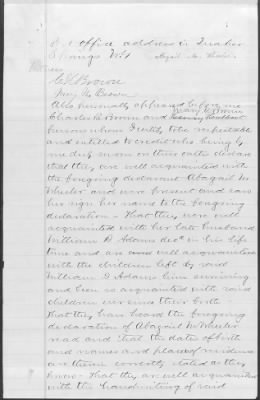 post office address is Quaker
Springs N.Y.
Abigail M. Wheeler
C R Brown
Mary H. Brown
Also personally appeared before me
Charles R. Brown and Mary H Brown
persons whom I certify to be respectable
and entitled to credit who being by
me duly sworn on their oaths declare
that they are well acquainted with
the foregoing declarant Abagail M
Wheeler and were present and saw
her sign her name to the foregoing
declaration - That they were well
acquainted with her late husband
William D. Adams decd in his life
time and are well acquainted
with the children left by said
William D Adams him surviving
and been so acquainted with said
children ever since their birth
That they have heard the foregoing
declaration of Abagail M Wheeler
read and that the dates of birth
and names and places of residence
are therein correctly stated as they
know - That they are well acquainted
with the handwriting of said